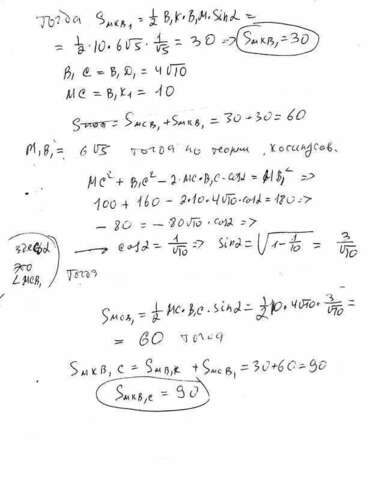 Тогда S_MKB₁ = ½ B₁K · B₁M · Sin2 =
= ½ · 10 · 6√5 · 1/√5 = 30 => S_MKB₁ = 30
B₁C = B₁D₁ = 4√10
MC = B₁K₁ = 10
S = S_MCB₁ + S_MKB₁ = 30 + 30 = 60
M₁B₁ = 6√5 тогда по теории косинусов.
MC² + B₁C² - 2·MC·B₁C·cos2 = MB₁² =>
100 + 160 - 2·10·4√10·cos2 = 180 =>
- 80 = - 80√10 · cos2 =>
здесь 2 это ∠MCB₁ → cos2 = 1/√10 => Sin2 = √(1 - 1/10) = 3/√10
тогда
S_MCB₁ = ½ MC · B₁C · sin2 = ½ 10 · 4√10 · 3/√10 =
= 60 тогда
S_MKB₁C = S_MB₁K + S_MCB₁ = 30 + 60 = 90
S_MKB₁C = 90